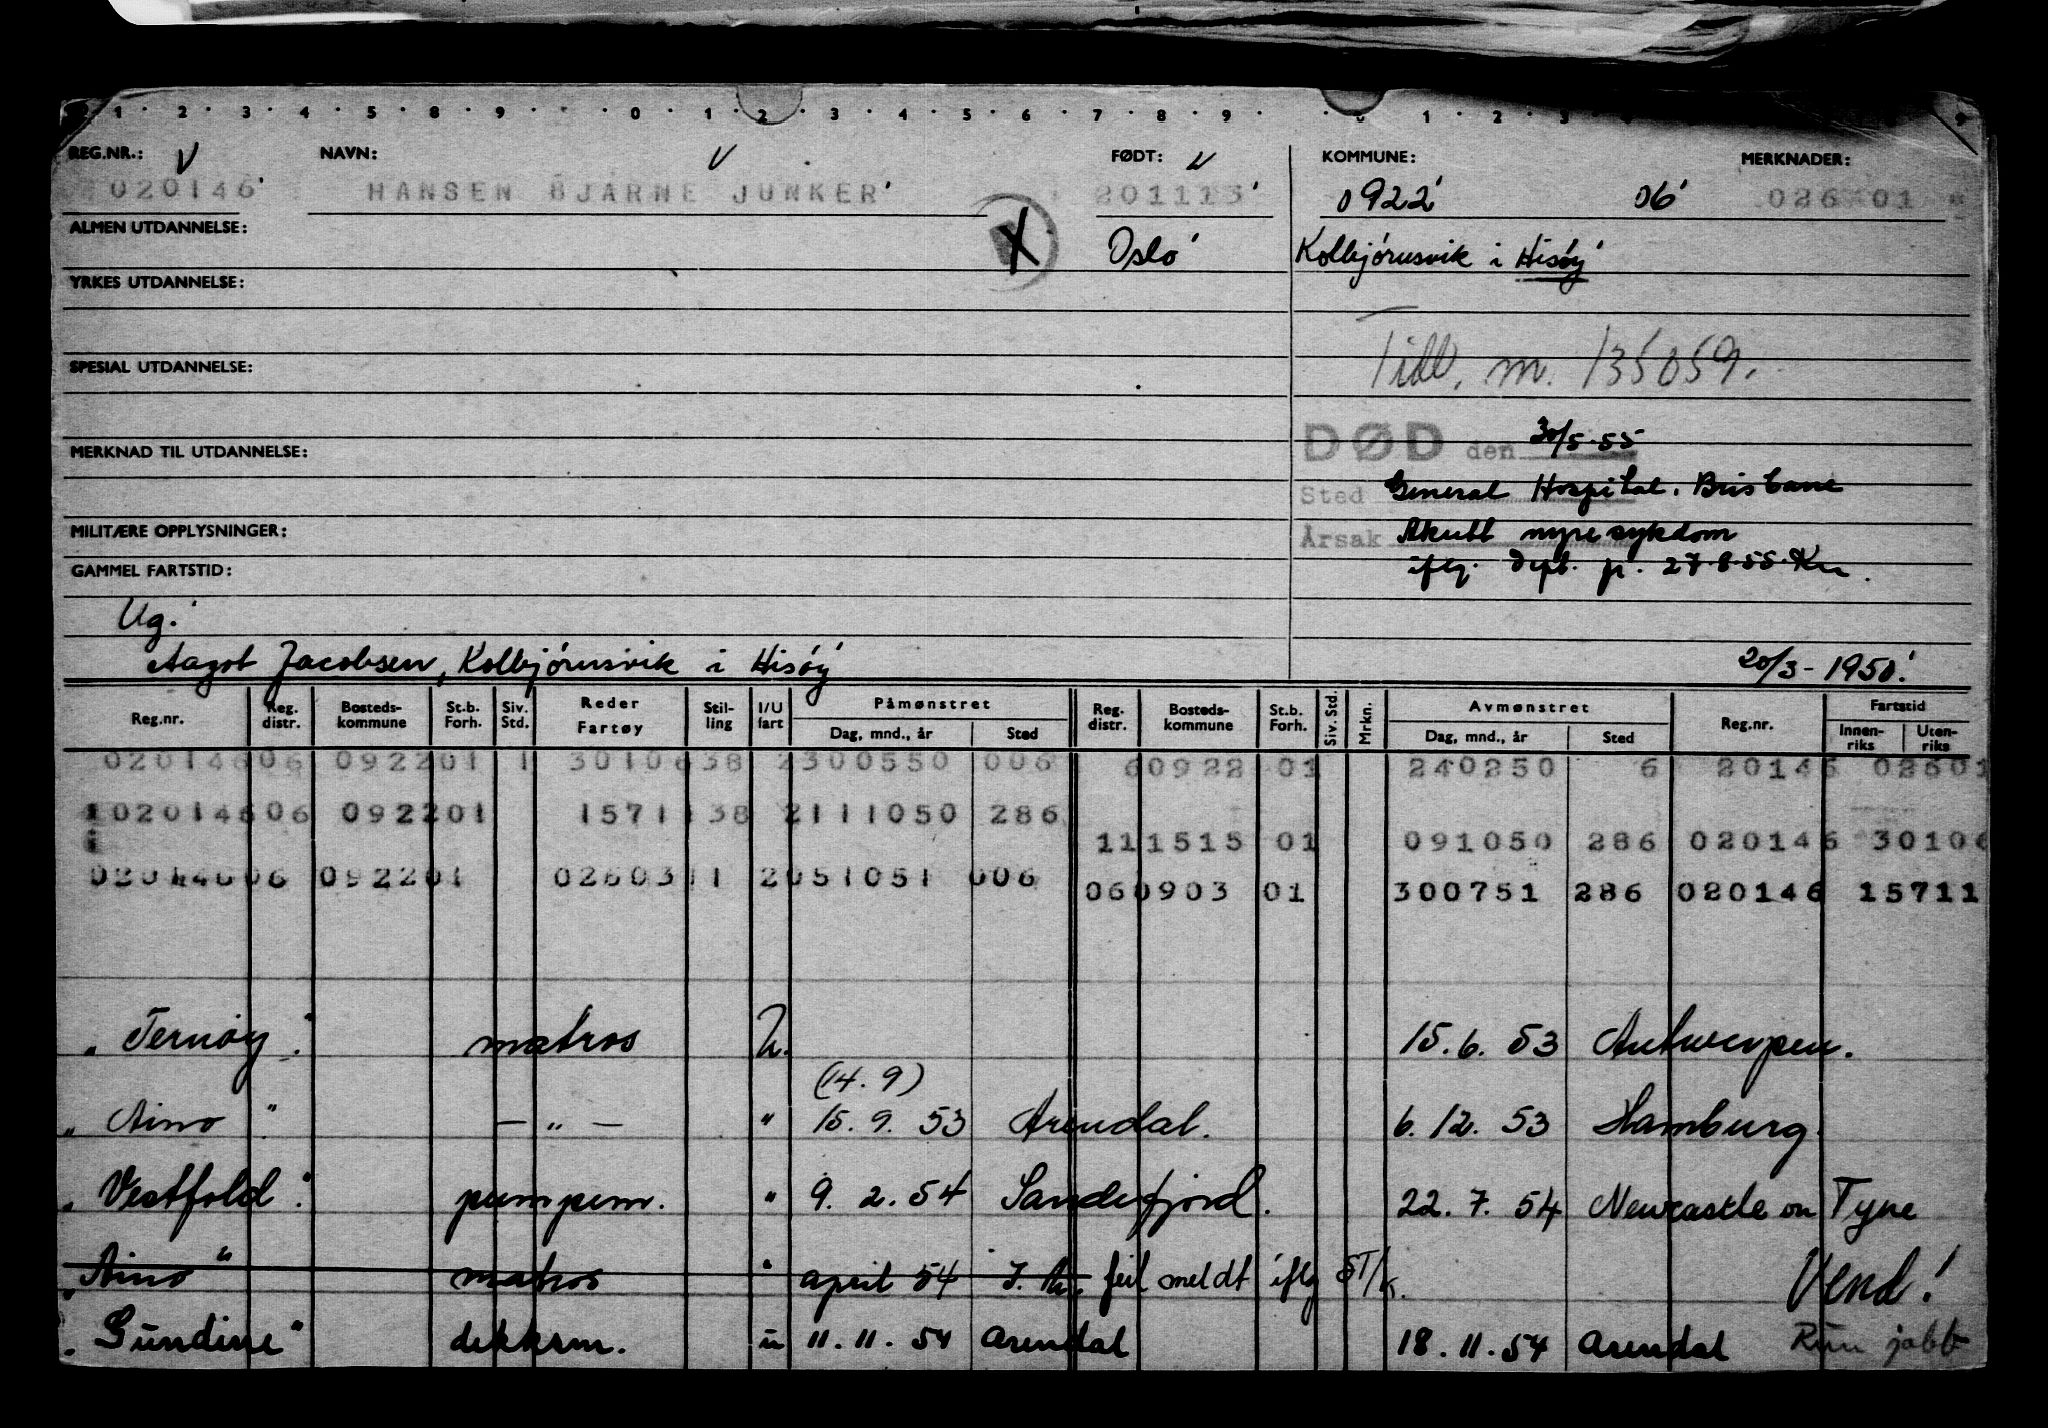 1 2 3 4 5 8 9 0 1 2 3 4 5 6 7 8 9 0 1 2 3
REG.NR.: V NAVN: V FØDT: V KOMMUNE: MERKNADER:
020146 HANSEN BJARNE JUNKER 201113 0922 06 02601
ALMEN UTDANNELSE: X Oslo Kolbjørnsvik i Hisøy
YRKES UTDANNELSE:
Till. m. 135059.
SPESIAL UTDANNELSE:
DØD den 30/5-55
MERKNAD TIL UTDANNELSE:
Sted General Hospital, Brisbane
MILITÆRE OPPLYSNINGER: Årsak Akutt nyresykdom
GAMMEL FARTSTID: iflg. Dept. p. 27.8.55. Kn.
Ug.
Aagot Jacobsen, Kolbjørnsvik i Hisøy 20/3-1950.
Reg.nr. Reg. distr. Bosteds-kommune St.b. Forh. Siv. Std. Reder Fartøy Stil-ling I/U fart Påmønstret Dag, mnd., år Sted Reg. distr. Bosteds-kommune St.b. Forh. Siv. Std. Mrkn. Avmønstret Dag, mnd., år Sted Reg.nr. Fartstid Innen-riks Uten-riks
020146 06 0922 01 1 30106 38 2 300550 006 6 0922 01 240250 6 20146 02601
1 020146 06 0922 01 15711 38 2 111050 286
11 1515 01 091050 286 020146 30106
020146 06 0922 01 02603 11 2 051051 006
06 0903 01 300751 286 020146 15711
"Ternøy". matros U. 15.6.53 Antwerpen.
(14.9)
"Aino" — " — " 15.9.53 Arendal. 6.12.53 Hamburg.
"Vestfold". pumpem. " 9.2.54 Sandefjord. 22.7.54 Newcastle on Tyne
"Aino" matros " april 54 feil meldt iflg ST/K. Vend!
"Gundine" dekksm. u 11.11.54 Arendal 18.11.54 Arendal Run jobb